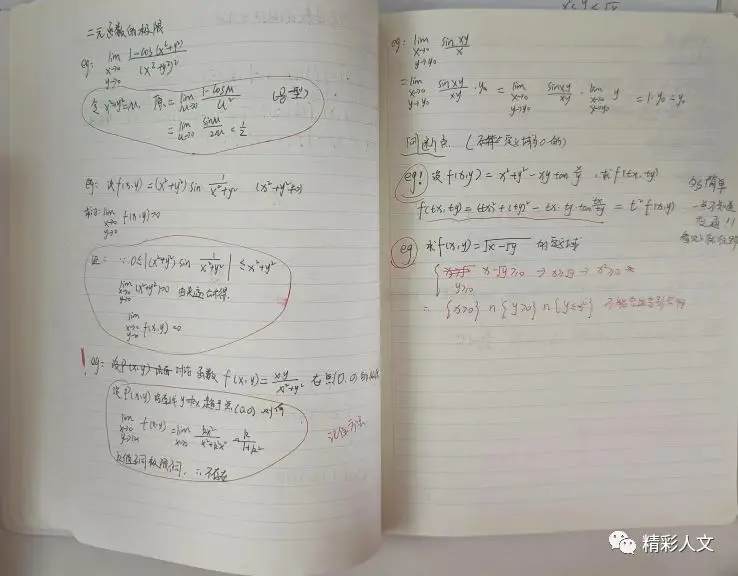 二元函数的极限
eg: lim x→0 y→0 1-cos(x²+y²) / (x²+y²)²
令 x²+y²=u 原=lim u→0 1-cosu / u² (0/0型)
= lim u→0 sinu / 2u = 1/2
eg: 设f(x,y)=(x²+y²) sin 1/x²+y² (x²+y²≠0)
求证: lim x→0 y→0 f(x,y)=0
证: ∵ 0≤|(x²+y²) sin 1/x²+y²| ≤ x²+y²
lim x→0 y→0 (x²+y²)=0
lim x→0 y→0 f(x,y)=0
! eg: 讨论 函数 f(x,y)= xy / x²+y² 在点(0,0)的
设P(x,y) 沿 y=kx 趋于点(0,0)
lim f(x,y) = lim x→0 kx² / x²+k²x² = k / 1+k²
k值不同极限不同, ∴不存在
记住方法
eg: lim x→0 y→y₀ sinxy / x
= lim x→0 y→y₀ sinxy / xy · y₀ = lim x→0 y→y₀ sinxy / xy · lim x→0 y→y₀ y = 1·y₀ = y₀
间断点.
eg! 设 f(x,y) = x²+y²-xy tan x/y , 求f(tx,ty)
f(tx,ty) = (tx)²+(ty)²-tx·ty·tan tx/ty = t² f(x,y)
eg 求f(x,y)=√x-√y 的定义域
{ x-√y≥0 → x≥√y → x²≥y
y≥0
∴ {x≥0} ∩ {y≥0} ∩ {y≤x²}
精彩人文